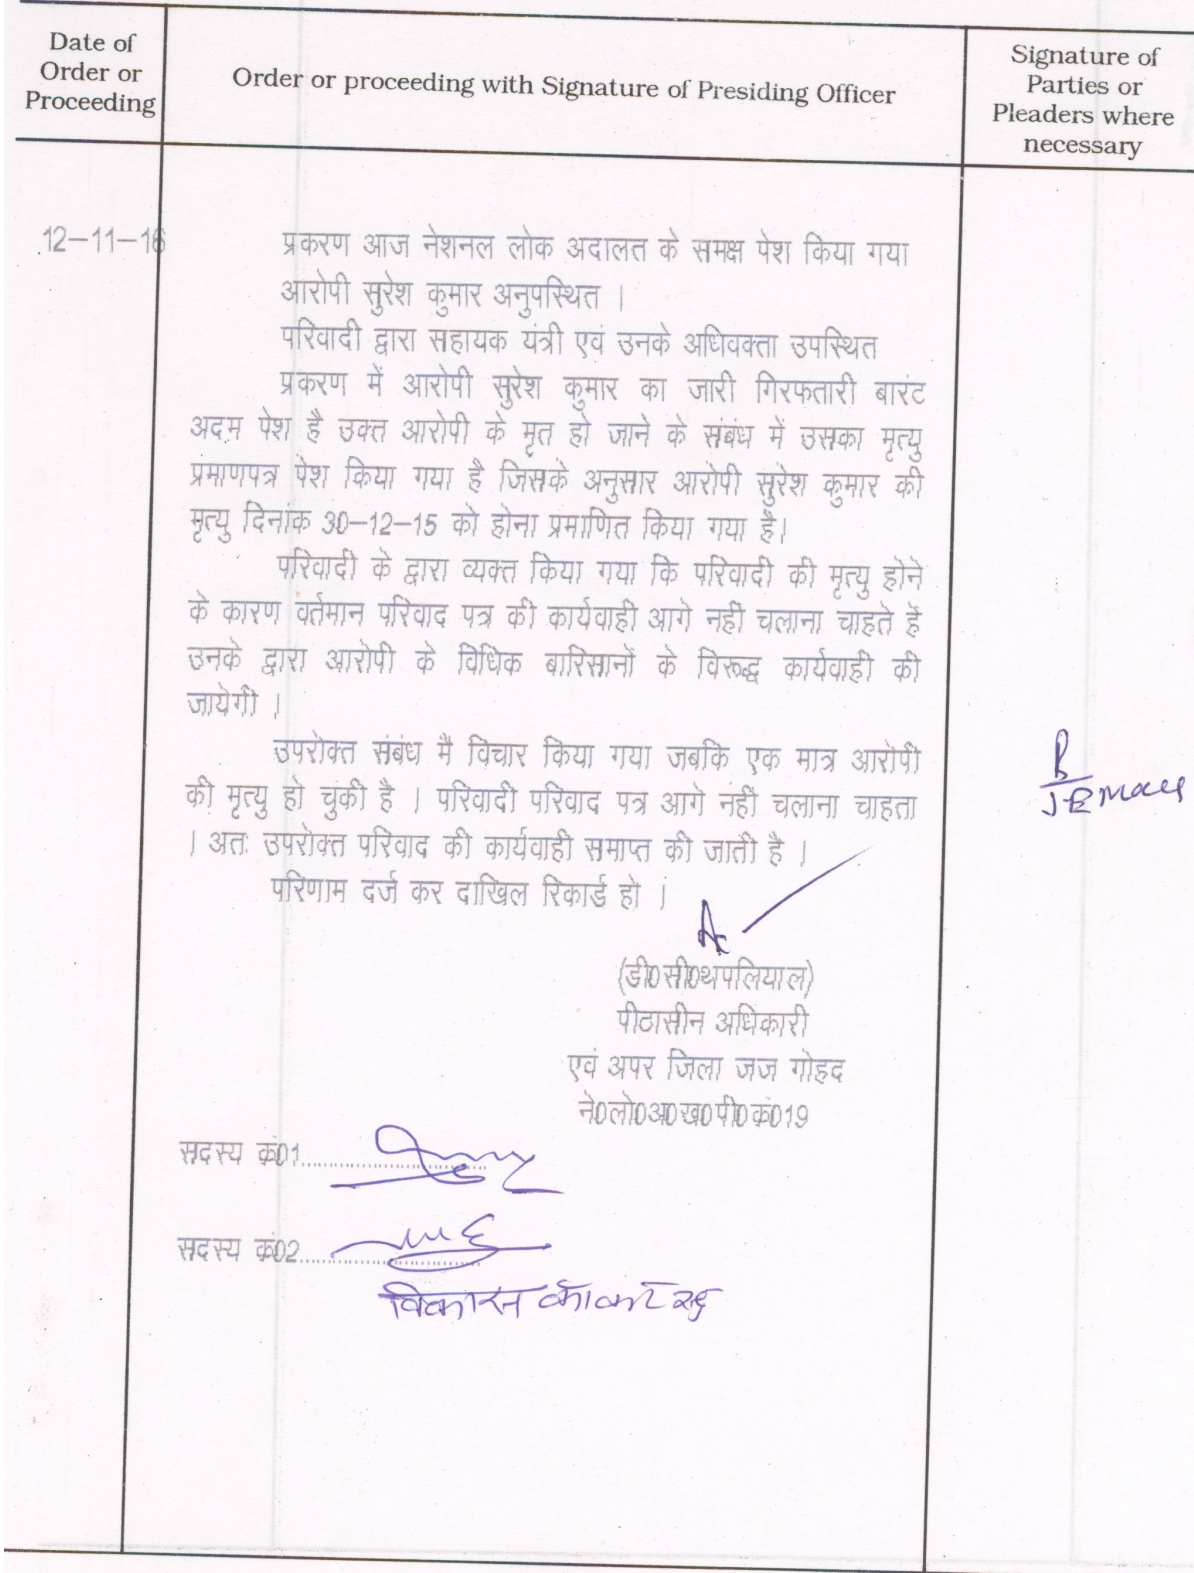 Date of
Order or
Proceeding
Order or proceeding with Signature of Presiding Officer
Signature of
Parties or
Pleaders where
necessary
12-11-16
प्रकरण आज नेशनल लोक अदालत के समक्ष पेश किया गया
आरोपी सुरेश कुमार अनुपस्थित ।
परिवादी द्वारा सहायक यंत्री एवं उनके अधिवक्ता उपस्थित
प्रकरण में आरोपी सुरेश कुमार का जारी गिरफतारी बारंट
अदम पेश है उक्त आरोपी के मृत हो जाने के संबंध में उसका मृत्यु
प्रमाणपत्र पेश किया गया है जिसके अनुसार आरोपी सुरेश कुमार की
मृत्यु दिनांक 30-12-15 को होना प्रमाणित किया गया है।
परिवादी के द्वारा व्यक्त किया गया कि परिवादी की मृत्यु होने
के कारण वर्तमान परिवाद पत्र की कार्यवाही आगे नहीं चलाना चाहते हें
उनके द्वारा आरोपी के विधिक बारिसानों के विरूद्ध कार्यवाही की
जायेगी ।
उपरोक्त संबंध मै विचार किया गया जबकि एक मात्र आरोपी
की मृत्यु हो चुकी है । परिवादी परिवाद पत्र आगे नहीं चलाना चाहता
। अतः उपरोक्त परिवाद की कार्यवाही समाप्त की जाती है ।
परिणाम दर्ज कर दाखिल रिकार्ड हो ।
(डी0सी0थपलियाल)
पीठासीन अधिकारी
एवं अपर जिला जज गोहद
ने0लो0अ0ख0पी0कं019
सदस्य कं01
सदस्य कं02